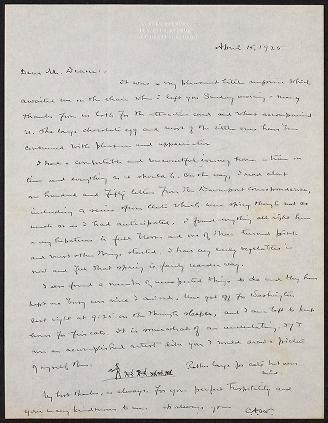 April 15, 1925
Dear Mr. Deane:
It was a very pleasant little surprise which
awaited me in the chair when I left you Sunday morning - many
thanks from us both for the attractive card and what accompanied
it. The large chocolate egg and most of the little ones have been
consumed with pleasure and appreciation
I had a comfortable and uneventful journey home, a train on
time and everything as it should be. On the way, I read about
one hundred and fifty letters from the Davenport correspondence,
including a series from Clark which were spicy though not as
much so as I had anticipated. I found everything all right here
my hepaticas in full bloom and one of them turned pink
and most other things started. I have my early vegetables in
now and feel that spring is fairly under way.
I also found a number of unexpected things to do and they have
kept me busy ever since I arrived. Una got off for Washington
last night at 9:25 on the through sleeper, and I am left to keep
house for five cats. It is somewhat of an undertaking. If I
were an accomplished artist like you I would send a picture
of myself thus. Rather large for cats but never
mind.
My best thanks, as always, for your perfect hospitality and
your many kindnesses to me. As always yours
CAW.